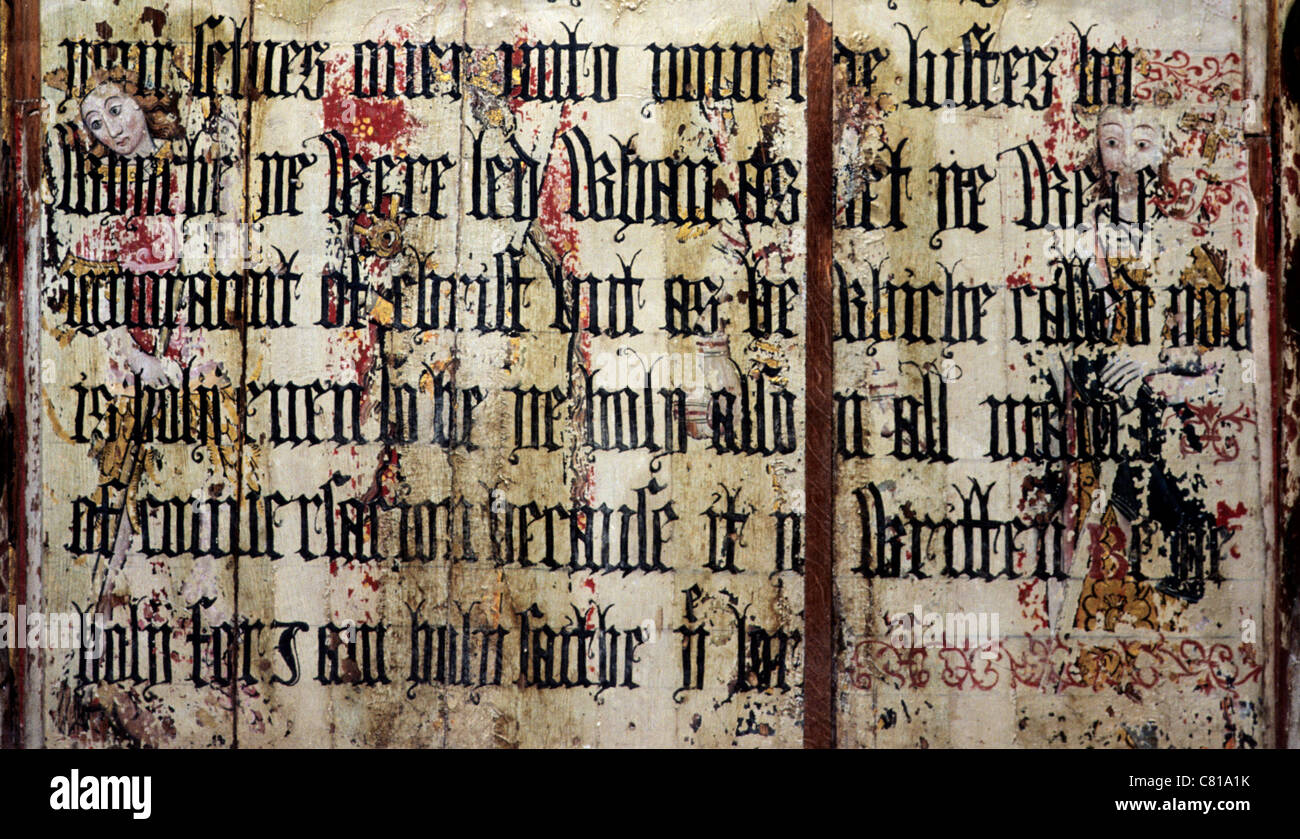 your selues ouer unto your o de lustes by
Whiche ye Were led Whan as yet ye Were
ignoraunt of christ but as he Whiche called you
is holy euen so be ye holy also in all maner
of conuersacion because it is Written Be ye
holy for I am holy saithe yͤ lor
alamy
alamy
Image ID: C81A1K
www.alamy.com